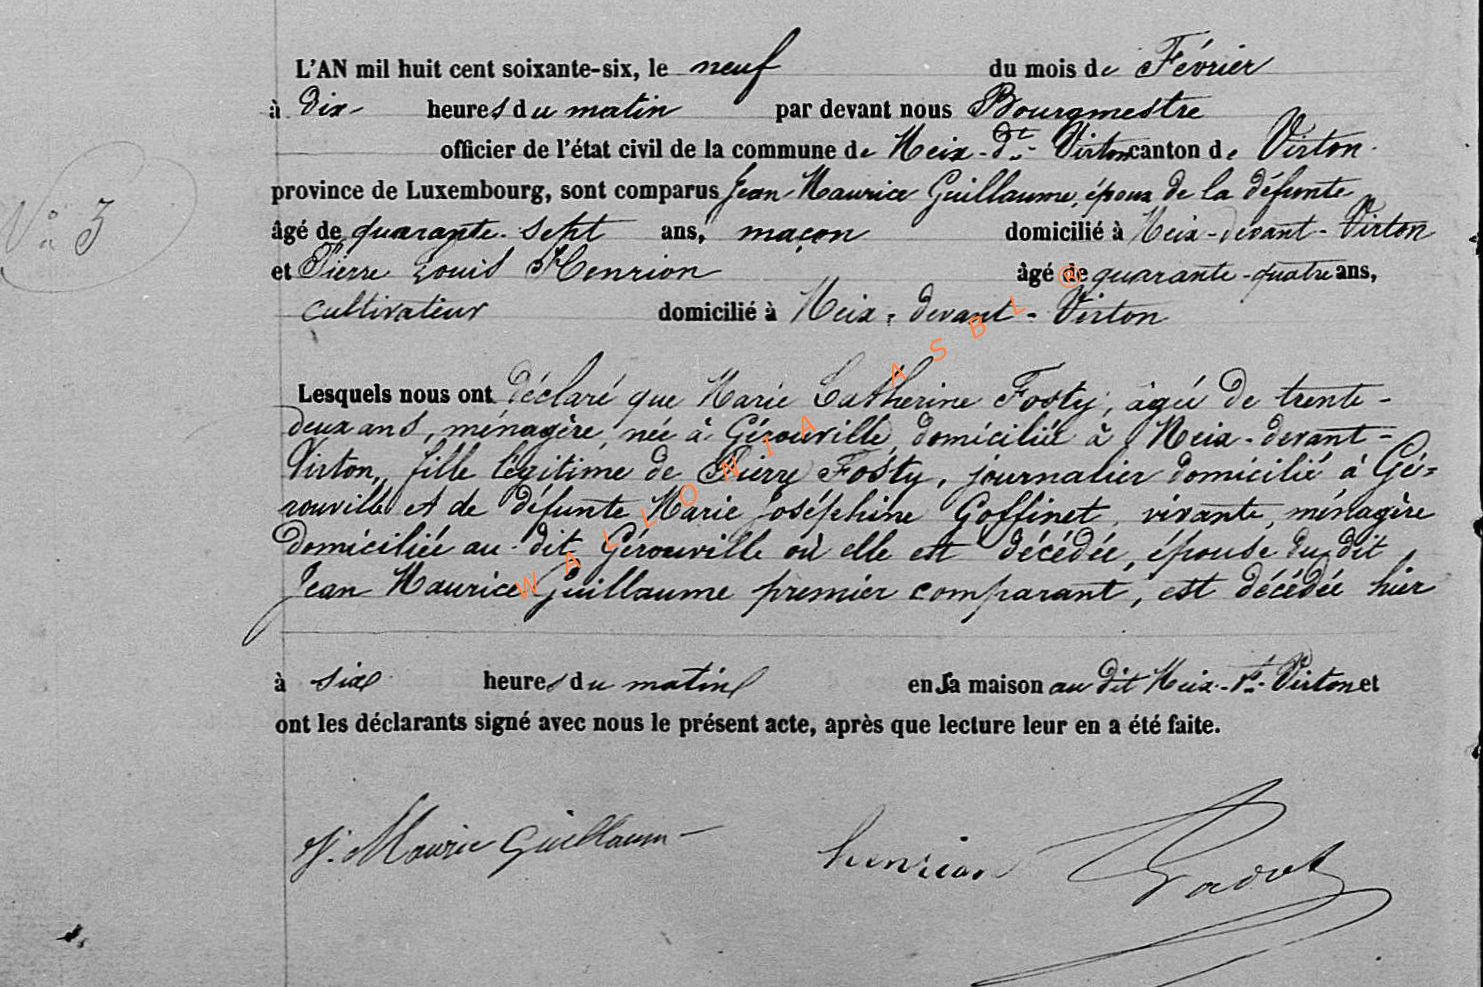 L'AN mil huit cent soixante-six, le neuf du mois de Février
à dix heures du matin par devant nous Bourgmestre
officier de l'état civil de la commune de Meix-dt-Virton canton de Virton.
province de Luxembourg, sont comparus Jean Maurice Guillaume, époux de la défunte
N° 3
âgé de quarante-sept ans, maçon domicilié à Meix-devant-Virton
et Pierre Louis Henrion âgé de quarante-quatre ans,
cultivateur domicilié à Meix-devant-Virton
Lesquels nous ont déclaré que Marie Catherine Fosty, âgée de trente-
deux ans, ménagère, née à Gérouville, domiciliée à Meix-devant-
Virton, fille légitime de Pierre Fosty, journalier domicilié à Gé=
rouville et de défunte Marie Joséphine Goffinet, vivante, ménagère
domiciliée au dit Gérouville où elle est décédée, épouse du dit
Jean Maurice Guillaume premier comparant, est décédée hier
à six heures du matin en sa maison au dit Meix-dt-Virton et
ont les déclarants signé avec nous le présent acte, après que lecture leur en a été faite.
J. Maurice Guillaum henrion
WALLONIA ASBL ®